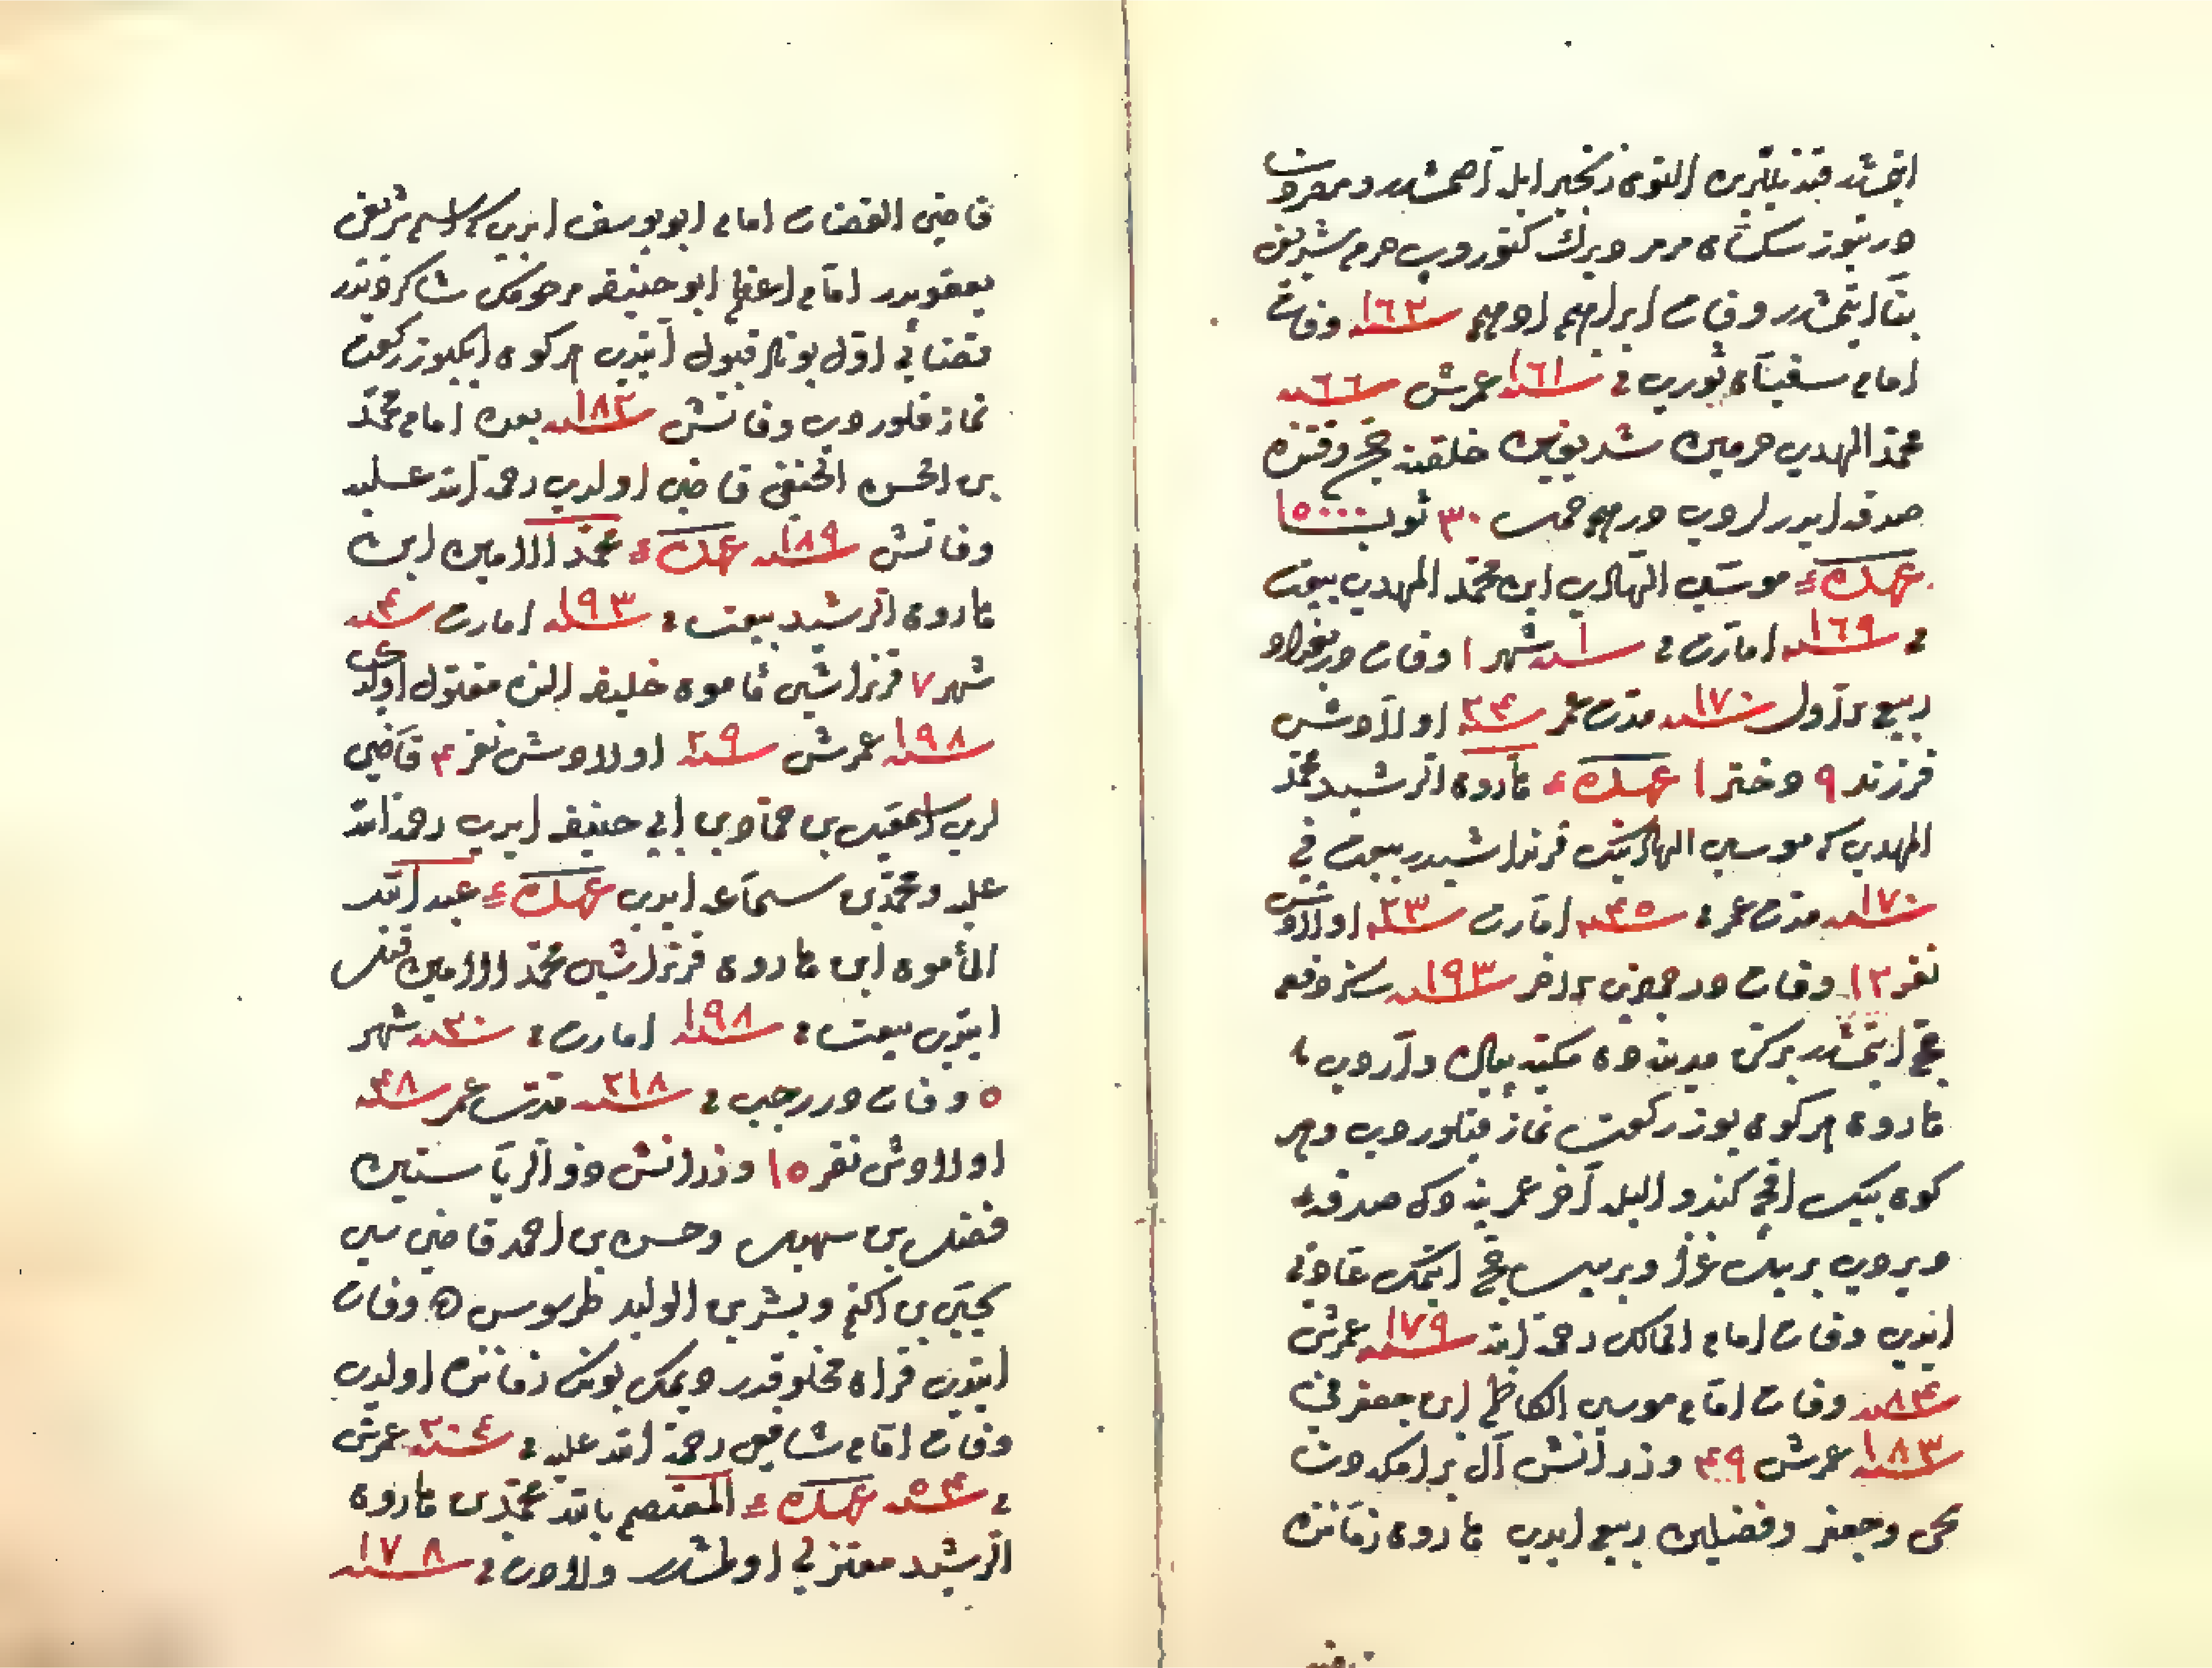 ایتمشدر قندیللرین التون زنجیر ایله آصمشدر و معروف
درتیوز سکسان مرمر دیرك کتوردوب حرم شریفی
بنا ایتمشدر وفات ابراهیم ادهم سنه ١٦٣ وفات
امام سفیان ثوری فی سنه ١٦١ عمرش سنه ٦٦
محمد المهدی حرمین شریفین خلقنه حج وقتنده
صدقه ایدرلردی درهم خمس ٣٠ ثوب ١٥٠٠٠٠
عهد موسی الهادی ابن محمد المهدی بیعت
فی سنه ١٦٩ امارت فی سنه ١ شهر ١ وفات در بغداد
ربیع الأول سنه ١٧٠ مدت عمر سنه ٢٤ اولادش
فرزند ٩ دختر ١ عهد هارون الرشید محمد
المهدی موسی الهادینك قرنداشیدر بیعت فی
سنه ١٧٠ مدت عمر فی سنه ٤٥ امارت سنه ٢٣ اولادش
نفر ١٢ وفات در جمادی الاخر سنه ١٩٣ سکز دفعه
حج ایتمشدر مدینه دن مکیه یایان واروب
هارون هر کون یوز رکعت نماز قیلوردی و هر
کون بیك اقچه کندو الیله آخر عمرینه دك صدقه
ویردی بر ییل غزا و بر ییل حج ایتمك عادتی
ایدی وفات امام المالك رحمه الله سنه ١٧٩ عمرش
سنه ٨٤ وفات امام موسی الکاظم ابن جعفر فی
سنه ١٨٣ عمرش ٤٩ وزرانش آل برامکه دن
یحیی و جعفر و فضیلین ربیع ایدی هارون زماننده
قاضی القضات امام ابو یوسف ایدی اسم شریفی
یعقوبدر امام اعظم ابو حنیفه مرحومك شاکردیدر
قضائی اول بونلر قبول ایتدی هر کون ایکیوز رکعت
نماز قلوردی وفاتش سنه ١٨٢ بعده امام محمد
بن الحسن الحنفی قاضی اولدی رحمة الله علیه
وفاتش سنه ١٨٩ عهد محمد الامین ابن
هارون الرشید بیعت فی سنه ١٩٣ امارت سنه ٤
شهر ٧ قرنداشی مامون خلیفه الندن مقتول اولدی
سنه ١٩٨ عمرش سنه ٢٩ اولادش نفر ٣ قاضی
لری اسمعیل بن حماد بن ابی حنیفه ایدی رحمة الله
علیه و محمد بن سماعه ایدی عهد عبد الله
المأمون ابن هارون قرنداشی محمد الامین قتل
ایتدی بیعت فی سنه ١٩٨ امارت فی سنه ٢٠ شهر
٥ وفات در رجب فی سنه ٢١٨ مدت عمر سنه ٤٨
اولادش نفر ١٥ وزرانش ذو الریاستین
فضل بن سهل و حسن بن احمد قاضی سی
یحیی بن اکثم و بشر بن الولید طرسوس ده وفات
ایتدی قران مخلوقدر دیمك بونك زماننده اولدی
وفات امام شافعی رحمة الله علیه فی سنه ٢٠٤ عمرش
فی سنه ٥٤ عهد المعتصم بالله محمد بن هارون
الرشید معتزلی اولمشدر ولادت فی سنه ١٧٨